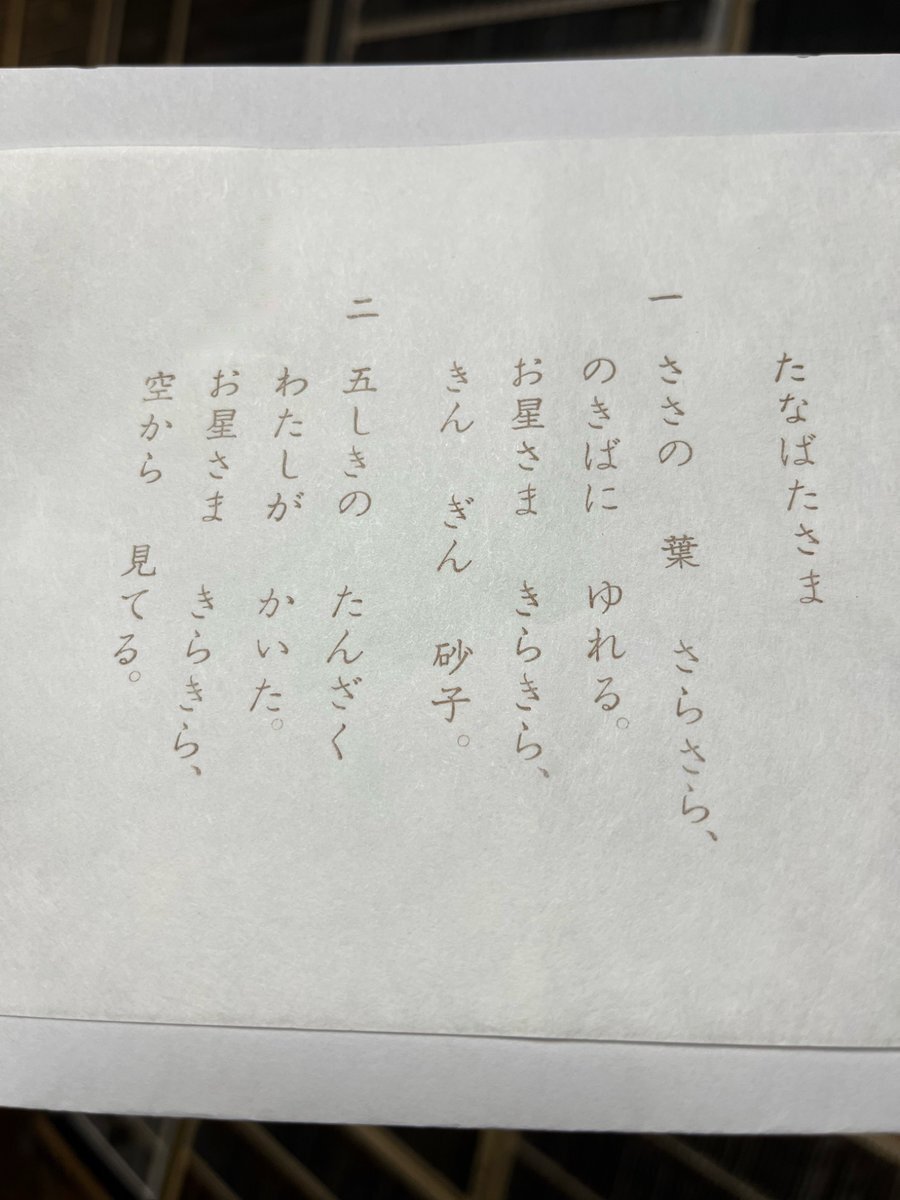 たなばたさま
一 ささの 葉 さらさら、
のきばに ゆれる。
お星さま きらきら、
きん ぎん 砂子。
二 五しきの たんざく
わたしが かいた。
お星さま きらきら、
空から 見てる。